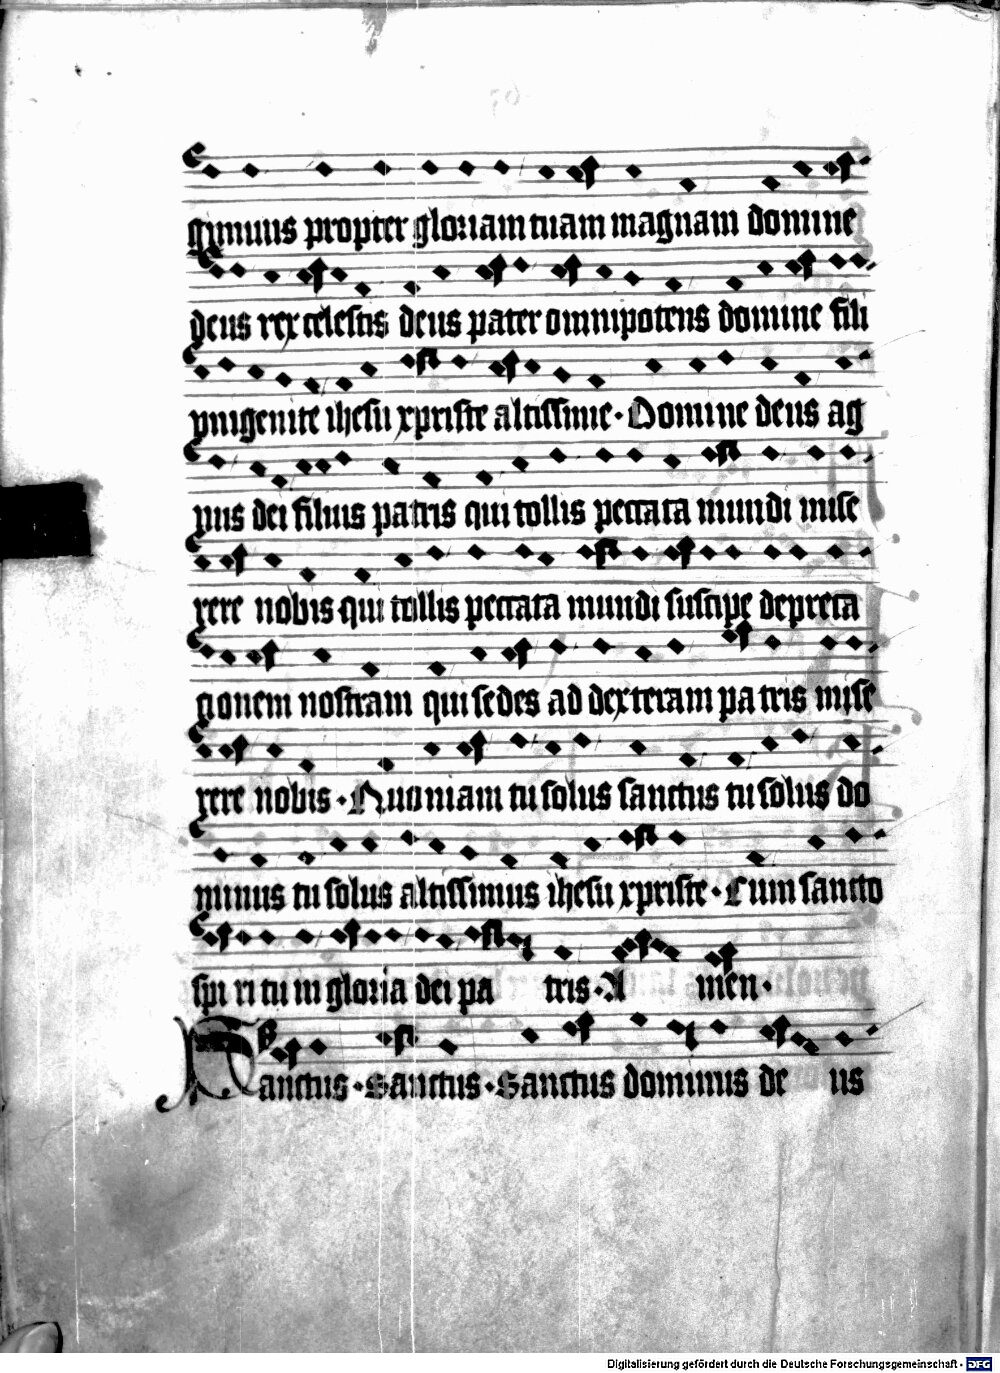 gimus propter gloriam tuam magnam domine
deus rex celestis deus pater omnipotens domine fili
vnigenite ihesu xpriste altissime · Domine deus ag
nus dei filius patris qui tollis peccata mundi mise
rere nobis qui tollis peccata mundi suscipe depreca
tionem nostram qui sedes ad dexteram pa tris mise
rere nobis · Quoniam tu solus sanctus tu solus do
minus tu solus altissimus ihesu xpriste · Cum sancto
spi ri tu in gloria dei pa tris · A men ·
Sanctus · Sanctus · Sanctus dominus de us
Digitalisierung gefördert durch die Deutsche Forschungsgemeinschaft - DFG